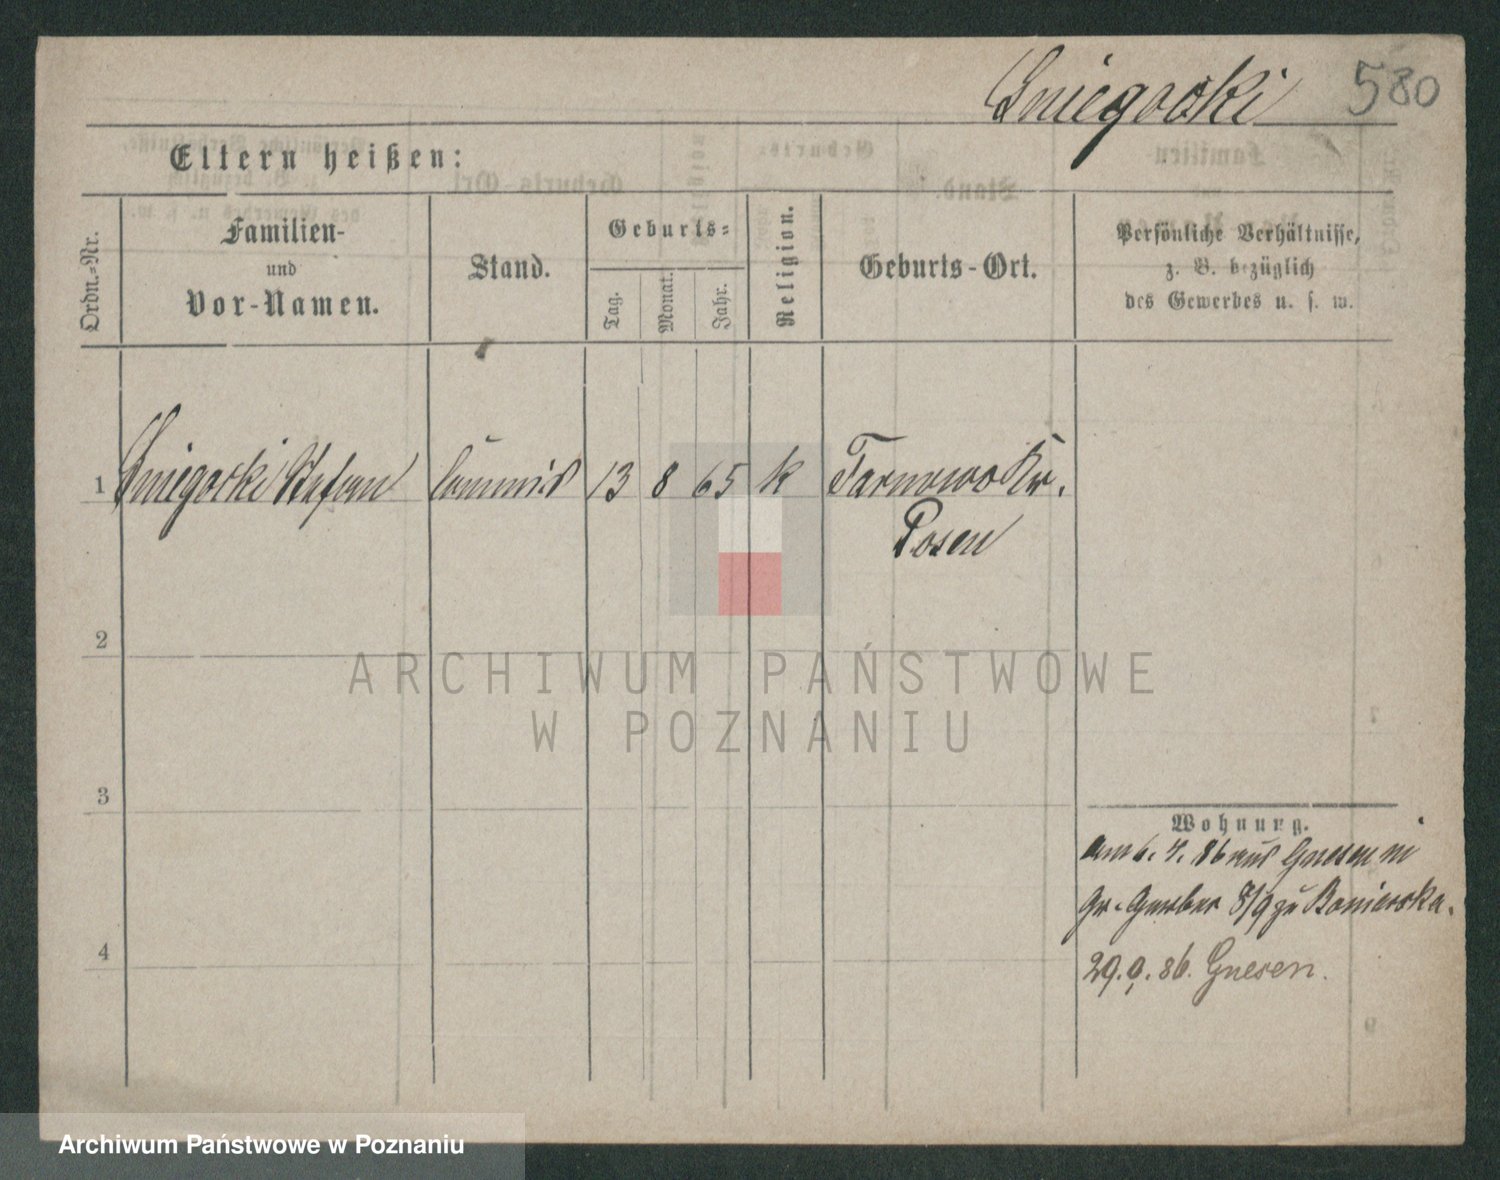 Sniegocki 580
Eltern heißen:
Ordn.-Nr.
Familien-
und
Vor-Namen.
Stand.
Geburts-
Tag.
Monat.
Jahr.
Religion.
Geburts-Ort.
Persönliche Verhältnisse,
z. B. bezüglich
des Gewerbes u. s. w.
1 Sniegocki Stefan Commis 13 8 65 k Tarnowo Kr.
Posen
2
ARCHIWUM PAŃSTWOWE
W POZNANIU
3
Wohnung.
am 6. 4. 86 aus Gnesen in
Gr. Gerber 8/9 zu
4
29. 9. 86. Gnesen.
Archiwum Państwowe w Poznaniu